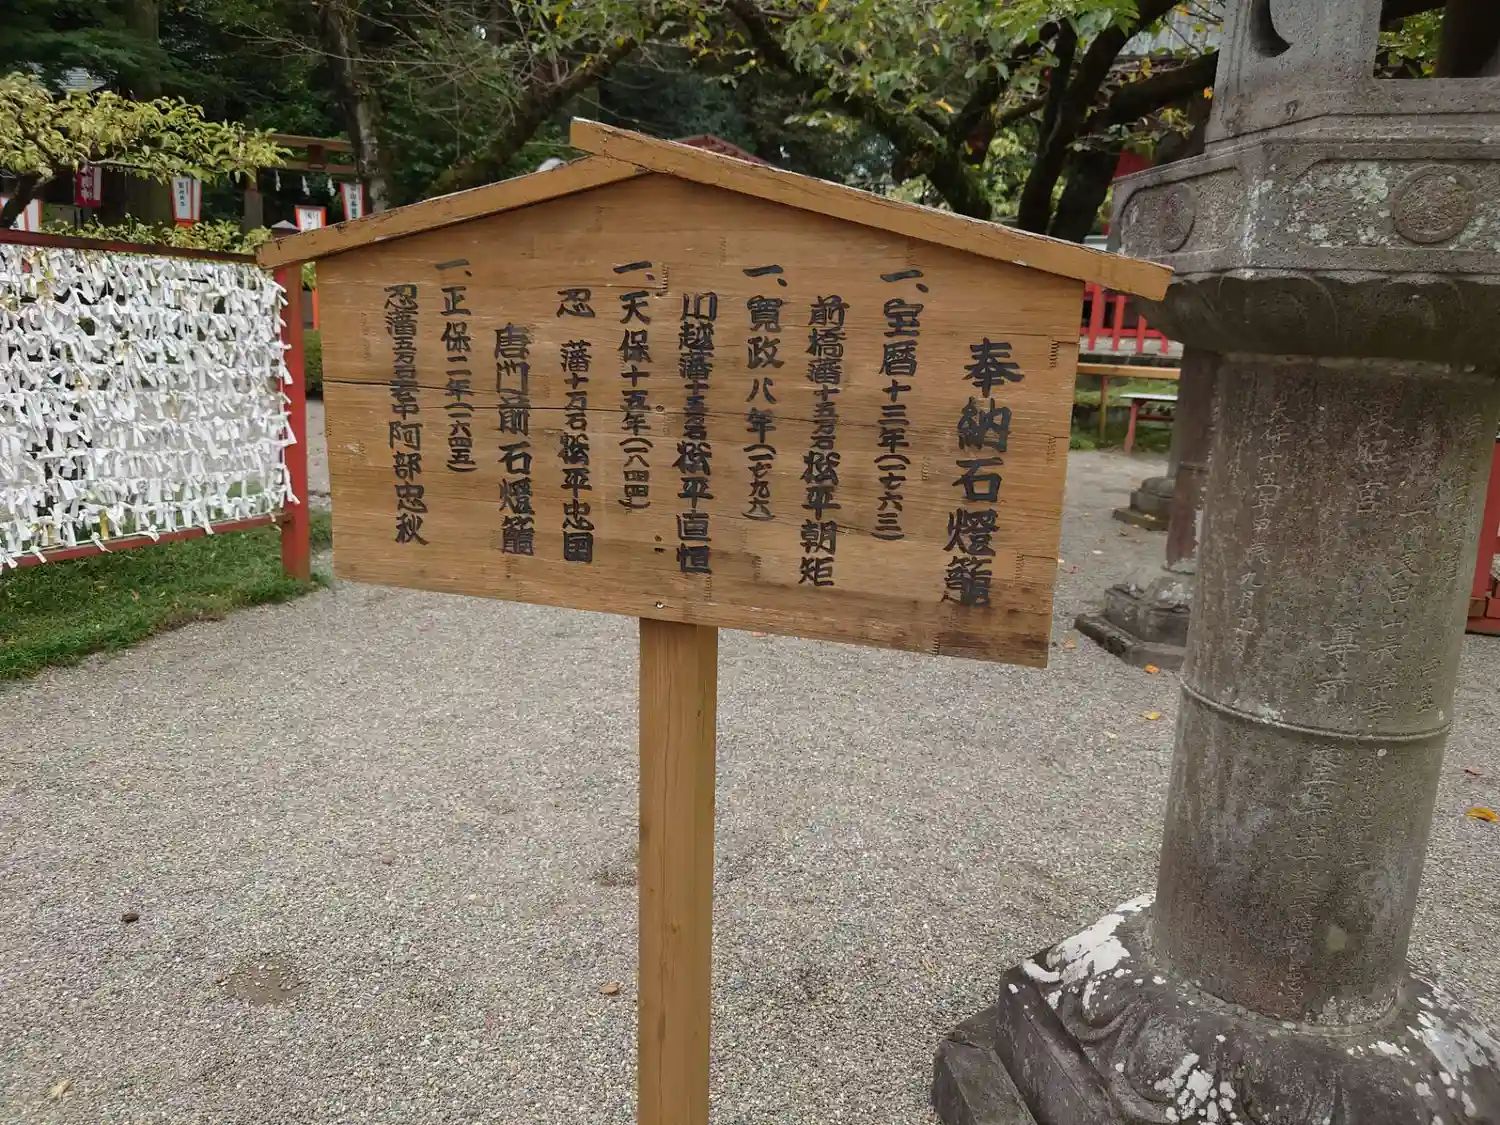 奉納石燈籠
一、宝暦十三年(一七六三)
前橋藩十五万石松平朝矩
一、寛政八年(一七九六)
川越藩十五万石松平直恒
一、天保十五年(一八四四)
忍 藩十万石松平忠国
唐門前石燈籠
一、正保二年(一六四五)
忍藩五万石老中阿部忠秋